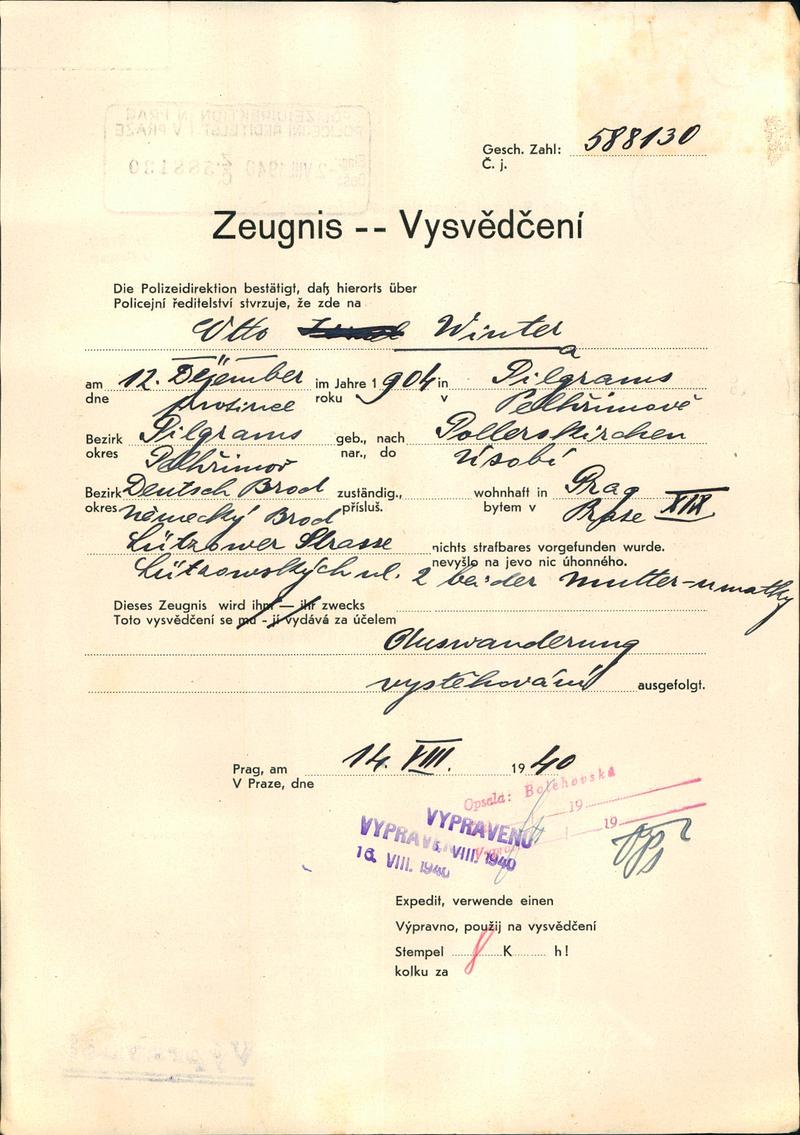 POLIZEIDIREKTION IN PRAG
POLICEJNÍ ŘEDITELSTVÍ V PRAZE
2 VIII. 1940 588130
Gesch. Zahl: 588130
Č. j.
Zeugnis -- Vysvědčení
Die Polizeidirektion bestätigt, daß hierorts über
Policejní ředitelství stvrzuje, že zde na
Otto Winter
a
am 12. Dezember im Jahre 1904 in Pilgrams
dne prosince roku v Pelhřimově
Bezirk Pilgrams geb., nach Pollerskirchen
okres Pelhřimov nar., do Úsobí
Bezirk Deutsch Brod zuständig., wohnhaft in Prag
okres Německý Brod přísluš. bytem v Praze XIX
Lützower Strasse nichts strafbares vorgefunden wurde.
nevyšlo na jevo nic úhonného.
Lützowských ul. 2 bei der Mutter-u matky
Dieses Zeugnis wird ihm — ihr zwecks
Toto vysvědčení se mu - jí vydává za účelem
Auswanderung
vystěhování ausgefolgt.
Prag, am 14. VIII. 1940
V Praze, dne
Opsala: Bolehovská
19
19
VYPRAVENO
VYPRAVENO
16. VIII. 1940
VIII. 1940
Expedit, verwende einen
Výpravno, použij na vysvědčení
Stempel 8 K h!
kolku za